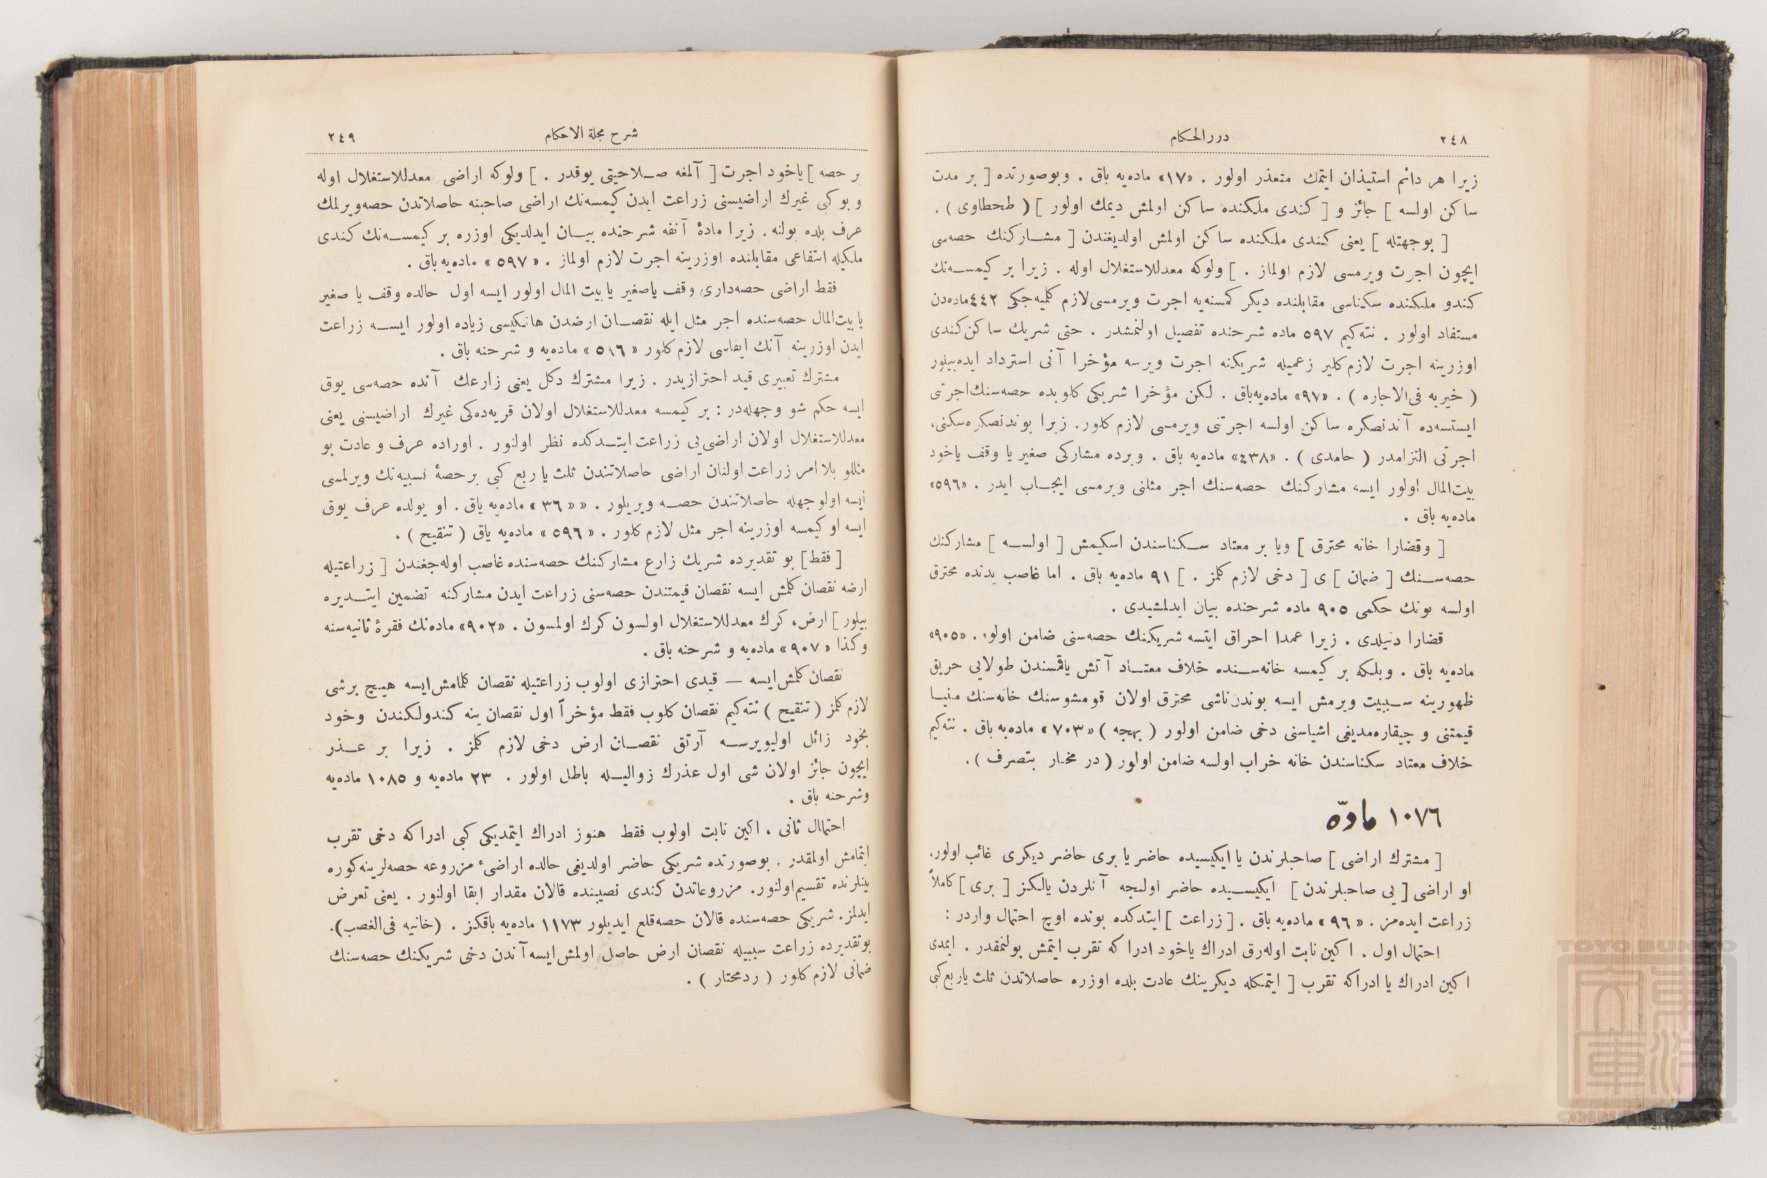 ٢٤٨
دررالحكام
زيرا هر دائم استيذان ايتمك متعذر اولور . «١٧» ماده‌يه باق . وبوصورتده [ بر مدت
ساكن اولسه ] جائز و [ كندى ملكنده ساكن اولمش ديمك اولور ] ( طحطاوى ) .
[ بوجهتله ] يعنى كندى ملكنده ساكن اولمش اولديغندن [ مشاركنك حصه‌سى
ايچون اجرت ويرمسى لازم اولماز . ] ولوكه معدللاستغلال اوله . زيرا بر كيمسه‌نك
كندو ملكنده سكناسى مقابلنده ديكر كمسنه‌يه اجرت ويرمسى لازم كليه‌جكى ٤٤٢ ماده‌دن
مستفاد اولور . نته‌كيم ٥٩٧ ماده شرحنده تفصيل اولنمشدر . حتى شريك ساكن كندى
اوزرينه اجرت لازم كلير زعميله شريكنه اجرت ويرسه مؤخرا آنى استرداد ايده‌بيلور
( خيريه فى الاجاره ) . «٩٧» ماده‌يه باق . لكن مؤخرا شريكى كلوبده حصه‌سنك اجرتى
ايستسه‌ده آندنصكره ساكن اولسه اجرتنى ويرمسى لازم كلور . زيرا بوندنصكره سكنى،
اجرتى التزامدر ( حامدى ) . «٤٣٨» ماده‌يه باق . وبرده مشاركى صغير يا وقف ياخود
بيت‌المال اولور ايسه مشاركنك حصه‌سنك اجر مثلنى ويرمسى ايجاب ايدر . «٥٩٦»
ماده‌يه باق .
[ وقضارا خانه محترق ] ويا بر معتاد سكناسندن اسكيمش [ اولسه ] مشاركنك
حصه‌سنك [ ضمان ] ى [ دخى لازم كلمز . ] ٩١ ماده‌يه باق . اما غاصب يدنده محترق
اولسه بونك حكمى ٩٠٥ ماده شرحنده بيان ايدلمشيدى .
قضارا دنيلدى . زيرا عمدا احراق ايتسه شريكنك حصه‌سنى ضامن اولور . «٩٠٥»
ماده‌يه باق . وبلكه بر كيمسه خانه‌سنده خلاف معتاد آتش ياقمسندن طولايى حريق
ظهورينه سببيت ويرمش ايسه بوندن ناشى محترق اولان قومشوسنك خانه‌سنك مبنيا
قيمتنى و چيقاره‌مديغى اشياسنى دخى ضامن اولور ( بهجه ) «٧٠٣» ماده‌يه باق . نته‌كيم
خلاف معتاد سكناسندن خانه خراب اولسه ضامن اولور ( در مختار بتصرف ) .
١٠٧٦ مادّه
[ مشترك اراضى ] صاحبلرندن يا ايكيسيده حاضر يا برى حاضر ديكرى غائب اولور .
او اراضى [ يى صاحبلرندن ] ايكيسيده حاضر اولنجه آنلردن يالكز [ برى ] كاملاً
زراعت ايده‌مز . «٩٦» ماده‌يه باق . [ زراعت ] ايتدكده بونده اوچ احتمال واردر :
احتمال اول . اكين نابت اوله‌رق ادراك ياخود ادراكه تقرب ايتمش بولنمقدر . ايمدى
اكين ادراك يا ادراكه تقرب [ ايتمكله ديكرينك عادت بلده اوزره حاصلاتدن ثلث ياربع كبى
شرح مجلة الاحكام
٢٤٩
بر حصه ] ياخود اجرت [ آلمغه صلاحيتى يوقدر . ] ولوكه اراضى معدللاستغلال اوله
و بو كى غيرك اراضيسنى زراعت ايدن كيمسه‌نك اراضى صاحبنه حاصلاتدن حصه‌ويرلمك
عرف بلده بولنه . زيرا مادۀ آنفه شرحنده بيان ايدلديكى اوزره بر كيمسه‌نك كندى
ملكيله انتفاعى مقابلنده اوزرينه اجرت لازم اولماز . «٥٩٧» ماده‌يه باق .
فقط اراضى حصه‌دارى وقف ياصغير يا بيت المال اولور ايسه اول حالده وقف يا صغير
يا بيت‌المال حصه‌سنده اجر مثل ايله نقصان ارضدن هانكيسى زياده اولور ايسه زراعت
ايدن اوزرينه آنك ايفاسى لازم كلور «٥١٦» ماده‌يه و شرحنه باق .
مشترك تعبيرى قيد احترازيدر . زيرا مشترك دكل يعنى زارعك آنده حصه‌سى يوق
ايسه حكم شو وجهله‌در : بر كيمسه معدللاستغلال اولان قريه‌ده‌كى غيرك اراضيسنى يعنى
معدللاستغلال اولان اراضى‌يى زراعت ايتدكده نظر اولنور . اوراده عرف و عادت بو
مثللو بلا امر زراعت اولنان اراضى حاصلاتندن ثلث يا ربع كبى بر حصۀ نسبيه‌نك ويرلمسى
ايسه اولوجهله حاصلاتندن حصه ويريلور . «« ٣٦ » ماده‌يه باق . او يولده عرف يوق
ايسه او كيمسه اوزرينه اجر مثل لازم كلور . «٥٩٦» ماده‌يه باق ( تنقيح ) .
[ فقط ] بو تقديرده شريك زارع مشاركنك حصه‌سنده غاصب اوله‌جغندن [ زراعتيله
ارضه نقصان كلمش ايسه نقصان قيمتندن حصه‌سنى زراعت ايدن مشاركنه تضمين ايتديره
بيلور ] ارض، كرك معدللاستغلال اولسون كرك اولمسون . «٩٠٢» ماده‌نك فقرۀ ثانيه‌سنه
وكذا «٩٠٧» ماده‌يه و شرحنه باق .
نقصان كلمش ايسه — قيدى احترازى اولوب زراعتيله نقصان كلمامش ايسه هيچ برشى
لازم كلمز ( تنقيح ) نته‌كيم نقصان كلوب فقط مؤخراً اول نقصان ينه كندولكندن وخود
بخود زائل اوليويرسه آرتق نقصان ارض دخى لازم كلمز . زيرا بر عذر
ايچون جائز اولان شى اول عذرك زواليله باطل اولور . ٢٣ ماده‌يه و ١٠٨٥ ماده‌يه
وشرحنه باق .
احتمال ثانى . اكين نابت اولوب فقط هنوز ادراك ايتمديكى كبى ادراكه دخى تقرب
ايتمامش اولمقدر . بوصورتده شريكى حاضر اولديغى حالده اراضىٔ مزروعه حصه‌لرينه كوره
بينلرنده تقسيم اولنور . مزروعاتدن كندى نصيبنده قالان مقدار ابقا اولنور . يعنى تعرض
ايدلمز . شريكى حصه‌سنده قالان حصه‌قلع ايديلور ١١٧٣ ماده‌يه باقكز . (خانيه فى‌الغصب) .
بوتقديرده زراعت سببيله نقصان ارض حاصل اولمش ايسه آندن دخى شريكنك حصه‌سنك
ضمانى لازم كلور ( ردمحتار ) .
TOYO BUNKO